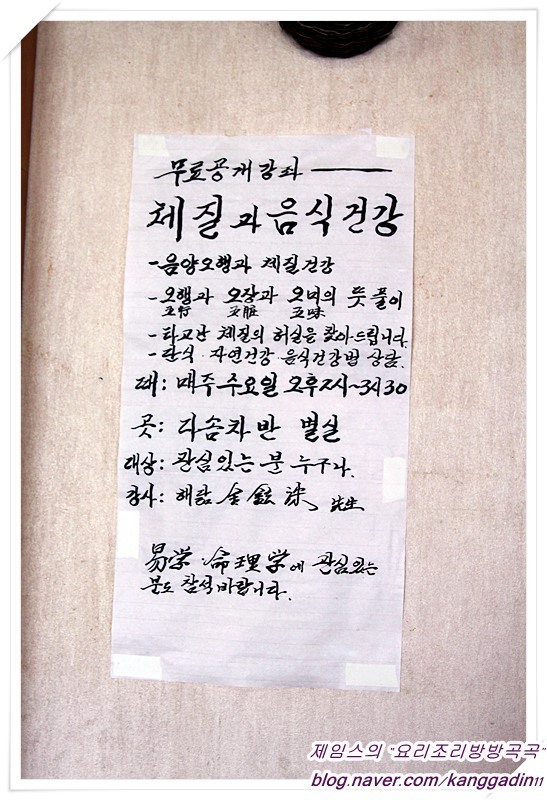 무료공개강좌
체질과 음식건강
- 음양오행과 체질건강
- 오행과 오장과 오미의 뜻풀이
五行 五臟 五味
- 타고난 체질의 허실을 찾아드립니다.
- 단식 자연건강 음식건강법 상담.
때: 매주 수요일 오후2시~3시30
곳: 다솜차반 별실
대상: 관심있는 분 누구나.
강사: 해람 金鉉 先生
易学·命理学에 관심있는
분도 참석바랍니다.
제임스의 "요리조리방방곡곡"
blog.naver.com/kanggadin11